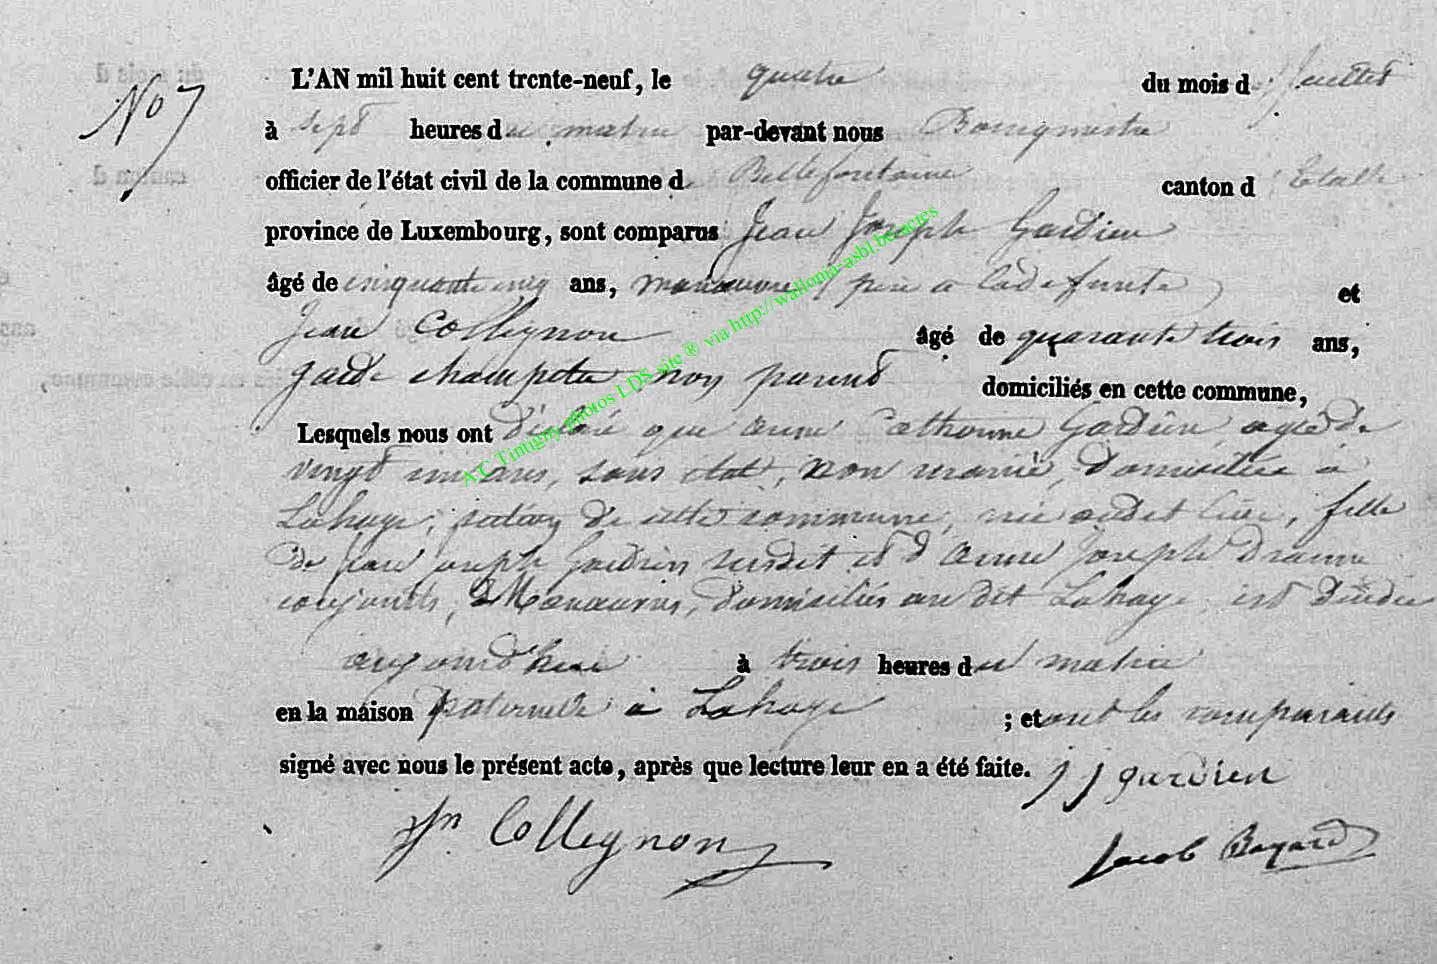 No 7
L'AN mil huit cent trente-neuf, le quatre du mois de juillet
à sept heures du matin par-devant nous Bourgmestre
officier de l'état civil de la commune de Bellefontaine canton d'Etalle
province de Luxembourg, sont comparus Jean Joseph Gardien
âgé de cinquante cinq ans, manœuvre, père a ladefunte, et
Jean Collignon âgé de quarante trois ans,
garde champetre, non parent domiciliés en cette commune,
Lesquels nous ont déclaré que anne Catherine Gardien agée de
vingt ans, sans etat, non marié, domiciliée à
Lahage, de cette commune, née audit lieu, fille
de Jean Joseph Gardien susdit et d'anne Joseph
conjoints, Manœuvres, domiciliés au dit Lahage, est décédée
aujourd'hui à trois heures du matin
en la maison paternelle à Lahage ; et ont les comparants
signé avec nous le présent acte, après que lecture leur en a été faite. J J gardien
Jn Collignon Jacob Bayard
A.C Tintigny photos LDS site ® via http://wallonia-asbl.be/actes